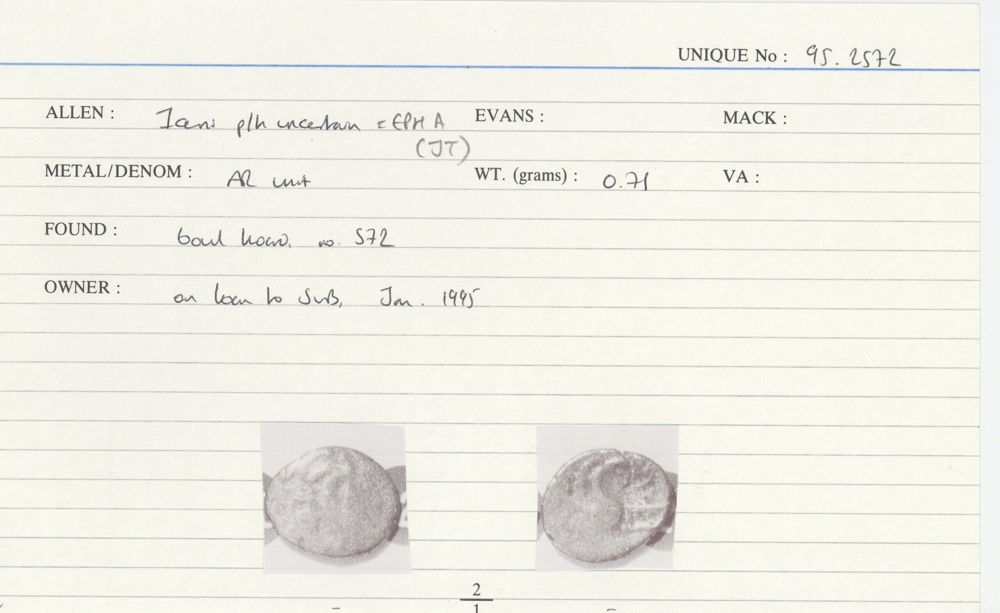 UNIQUE No : 95. 2572
ALLEN : Iceni p/h uncertain = EPH A EVANS : MACK :
(JT)
METAL/DENOM : AR unit WT. (grams) : 0.71 VA :
FOUND : bowl hoard, no. 572
OWNER : on loan to SWB, Jan. 1995
2
1